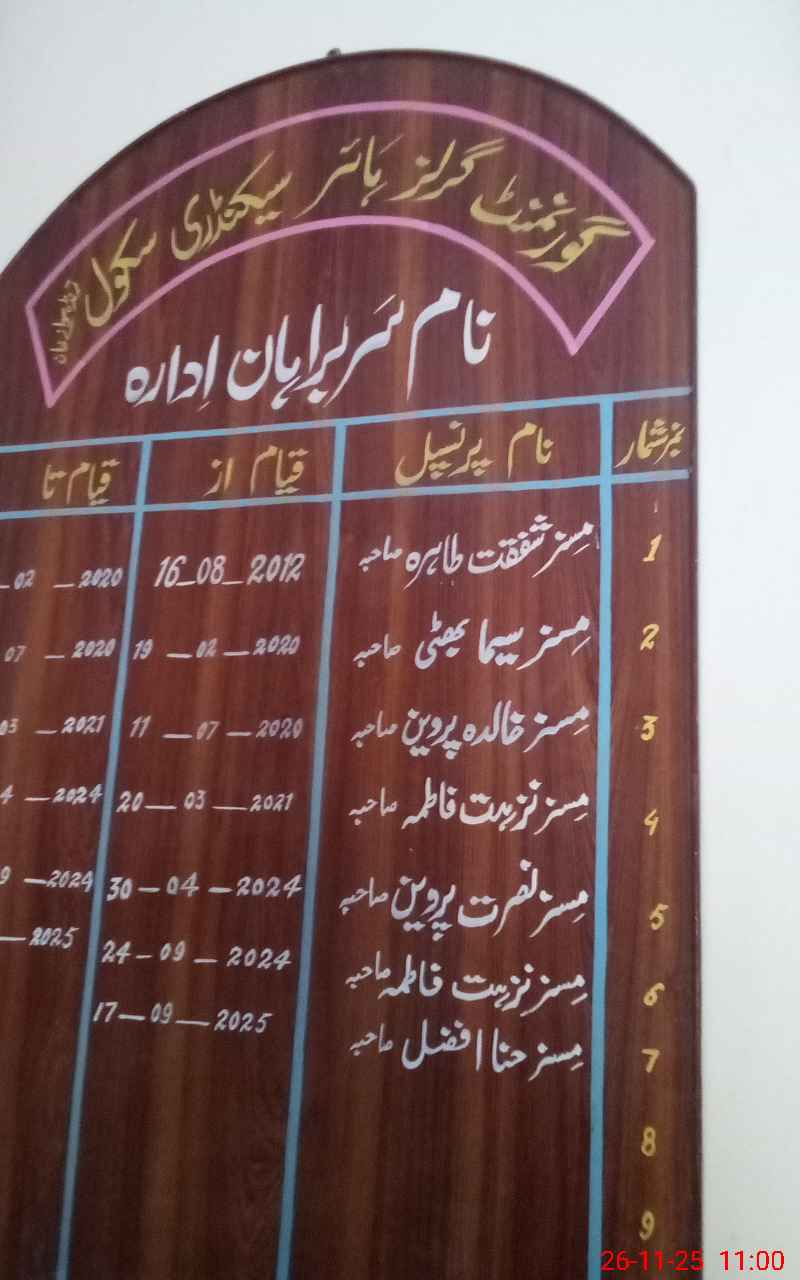 گورنمنٹ گرلز ہائر سیکنڈری سکول
نام سربراہان ادارہ
نمبر شمار نام پرنسپل قیام از قیام تا
1 مسز شفقت طاہرہ صاحبہ 16-08-2012 -02-2020
2 مسز سیما بھٹی صاحبہ 19-02-2020 07-2020
3 مسز خالدہ پروین صاحبہ 11-07-2020 03-2021
4 مسز نزہت فاطمہ صاحبہ 20-03-2021 4-2024
5 مسز نصرت پروین صاحبہ 30-04-2024 9-2024
6 مسز نزہت فاطمہ صاحبہ 24-09-2024 -2025
7 مسز حنا افضل صاحبہ 17-09-2025
8
9
26-11-25 11:00